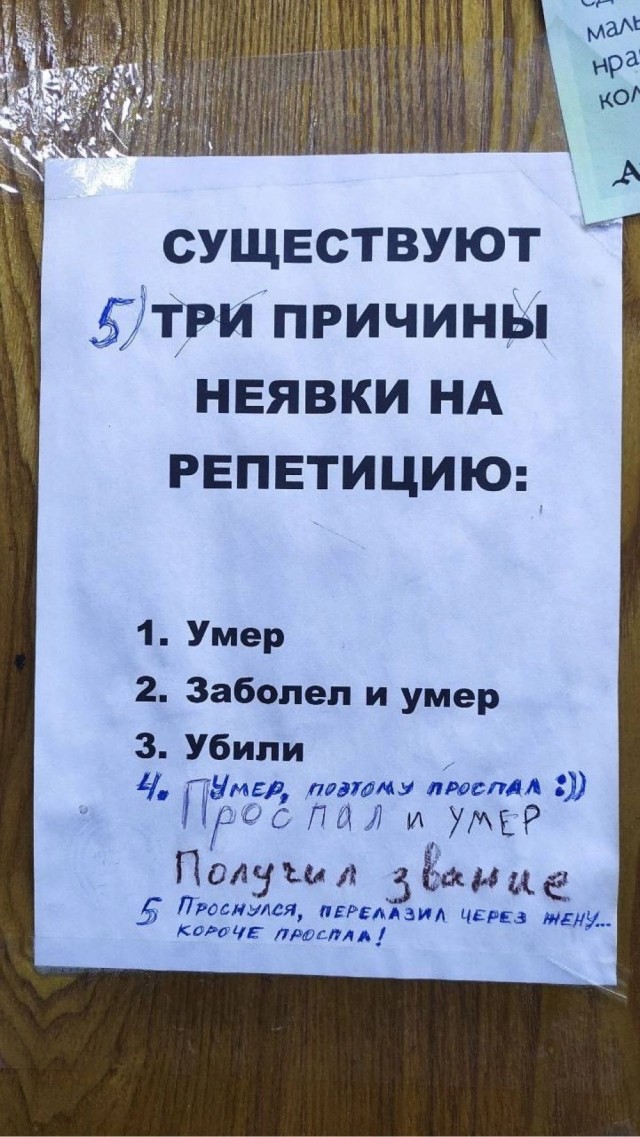 сд
маль
нра
кол
А
СУЩЕСТВУЮТ
5) ТРИ ПРИЧИНЫ
НЕЯВКИ НА
РЕПЕТИЦИЮ:
1. Умер
2. Заболел и умер
3. Убили
4. УМЕР, ПОЭТОМУ ПРОСПАЛ :))
Проспал и УМЕР
Получил звание
5 ПРОСНУЛСЯ, ПЕРЕЛАЗИЛ ЧЕРЕЗ ЖЕНУ...
КОРОЧЕ ПРОСПАЛ!